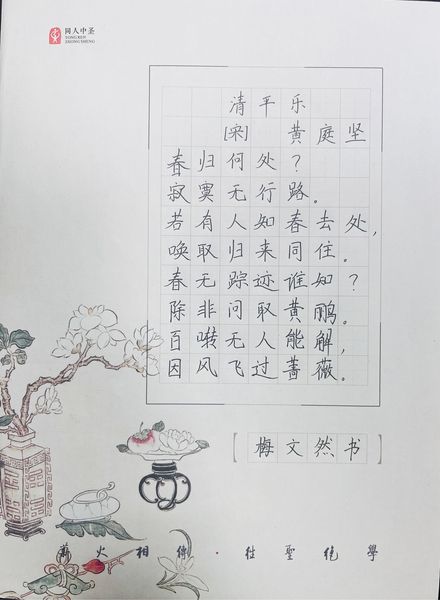 同人中圣
TONGREN
ZHONGSHENG
清平乐
[宋] 黄庭坚
春归何处？
寂寞无行路。
若有人知春去处，
唤取归来同住。
春无踪迹谁知？
除非问取黄鹂。
百啭无人能解，
因风飞过蔷薇。
[梅文然书]
薪火相傳·往聖絕學